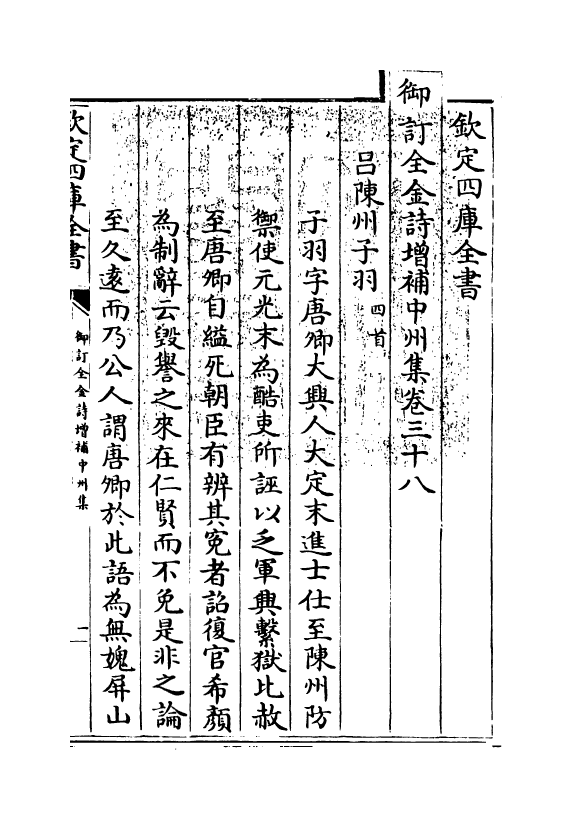 欽定四庫全書
御訂全金詩增補中州集卷三十八
呂陳州子羽四首
子羽字唐卿大興人大定末進士仕至陳州防
禦使元光末為酷吏所誣以乏軍興繫獄比赦
至唐卿自縊死朝臣有辨其冤者詔復官希顏
為制辭云毀譽之來在仁賢而不免是非之論
至久遠而乃公人謂唐卿於此語為無媿屏山
欽定四庫全書
御訂全金詩增補中州集
一